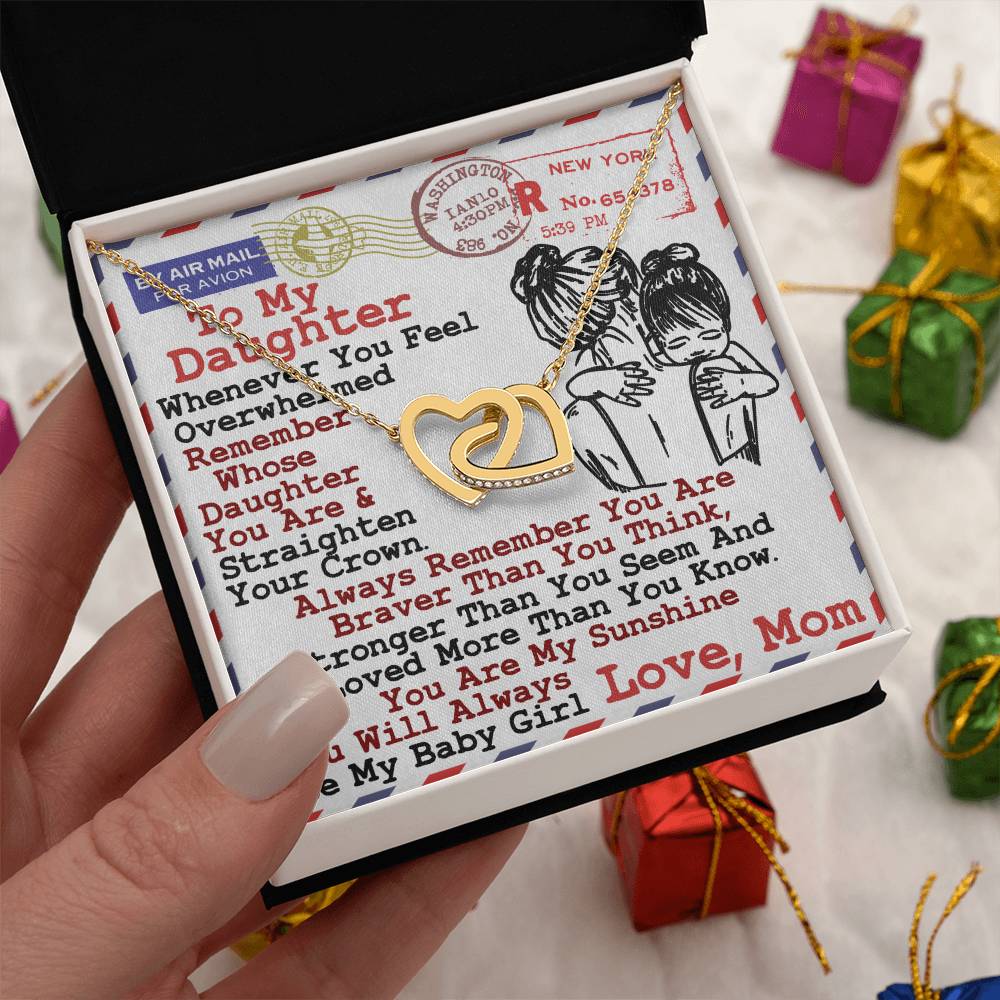 WASHINGTON
IAN10
4:30PM
NO. 983
NEW YORK
R No. 65 378
5:39 PM
BY AIR MAIL
PAR AVION
To My
Daughter
Whenever You Feel
Overwhelmed
Remember
Whose
Daughter
You Are &
Straighten
Your Crown.
Always Remember You Are
Braver Than You Think,
Stronger Than You Seem And
Loved More Than You Know.
You Are My Sunshine
You Will Always
Be My Baby Girl
Love, Mom